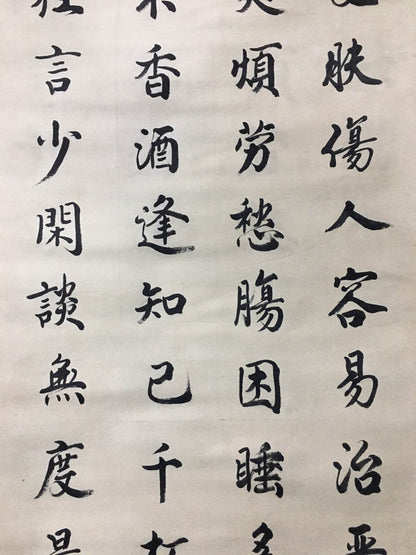 肤傷人容易治
煩勞愁腸困睡多
香酒逢知己千
言少閑談無度是